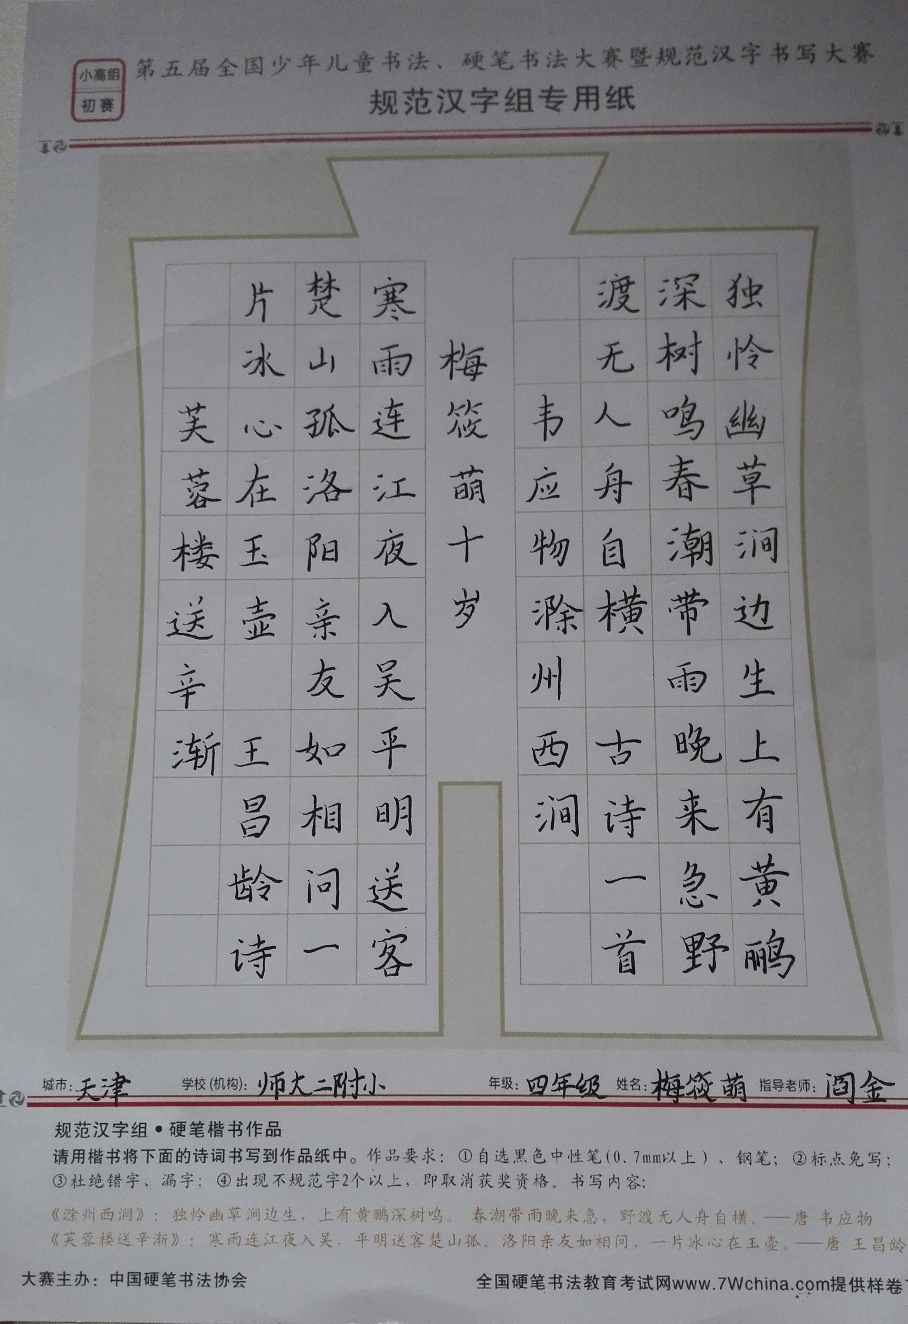 小高组
初赛
第五届全国少年儿童书法、硬笔书法大赛暨规范汉字书写大赛
规范汉字组专用纸
独怜幽草涧边生上有黄鹂
深树鸣春潮带雨晚来急野
渡无人舟自横古诗一首
韦应物滁州西涧
梅筱萌十岁
寒雨连江夜入吴平明送客
楚山孤洛阳亲友如相问一
片冰心在玉壶王昌龄诗
芙蓉楼送辛渐
城市：天津 学校(机构)：师大二附小 年级：四年级 姓名：梅筱萌 指导老师：阎金
规范汉字组•硬笔楷书作品
请用楷书将下面的诗词书写到作品纸中。作品要求：①自选黑色中性笔(0.7mm以上)、钢笔；②标点免写；
③杜绝错字、漏字；④出现不规范字2个以上，即取消获奖资格。书写内容：
《滁州西涧》：独怜幽草涧边生，上有黄鹂深树鸣。春潮带雨晚来急，野渡无人舟自横。——唐 韦应物
《芙蓉楼送辛渐》：寒雨连江夜入吴，平明送客楚山孤。洛阳亲友如相问，一片冰心在玉壶。——唐 王昌龄
大赛主办：中国硬笔书法协会 全国硬笔书法教育考试网www.7Wchina.com提供样卷下